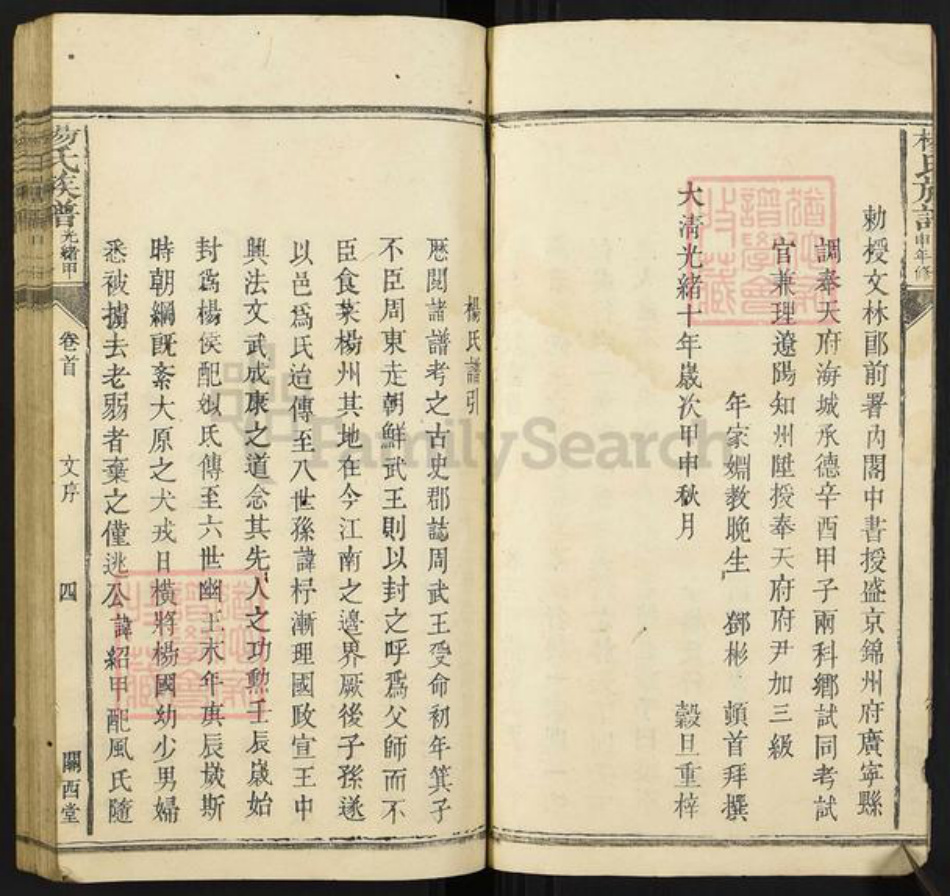 勅授文林郎前署內閣中書授盛京錦州府廣寧縣
調奉天府海城承德辛酉甲子兩科鄉試同考試
官兼理遼陽知州陞授奉天府府尹加三級
年家姻教晚生 鄧彬 頓首拜撰
大清光緒十年歲次甲申秋月 穀旦重梓
楊氏譜引
歷閱諸譜考之古史郡誌周武王受命初年箕子
不臣周東走朝鮮武王則以封之呼爲父師而不
臣食菜楊州其地在今江南之邊界厥後子孫遂
以邑爲氏迨傳至八世孫諱杍漸理國政宣王中
興法文武成康之道念其先人之功勲壬辰歲始
封爲楊侯配姒氏傳至六世幽王末年庚辰歲斯
時朝綱旣紊大原之犬戎日橫將楊國幼少男婦
悉被擄去老弱者棄之僅逃公諱紹甲配風氏隨
楊氏族譜 光緒甲
卷首
文序
四
關西堂
申年修
FamilySearch